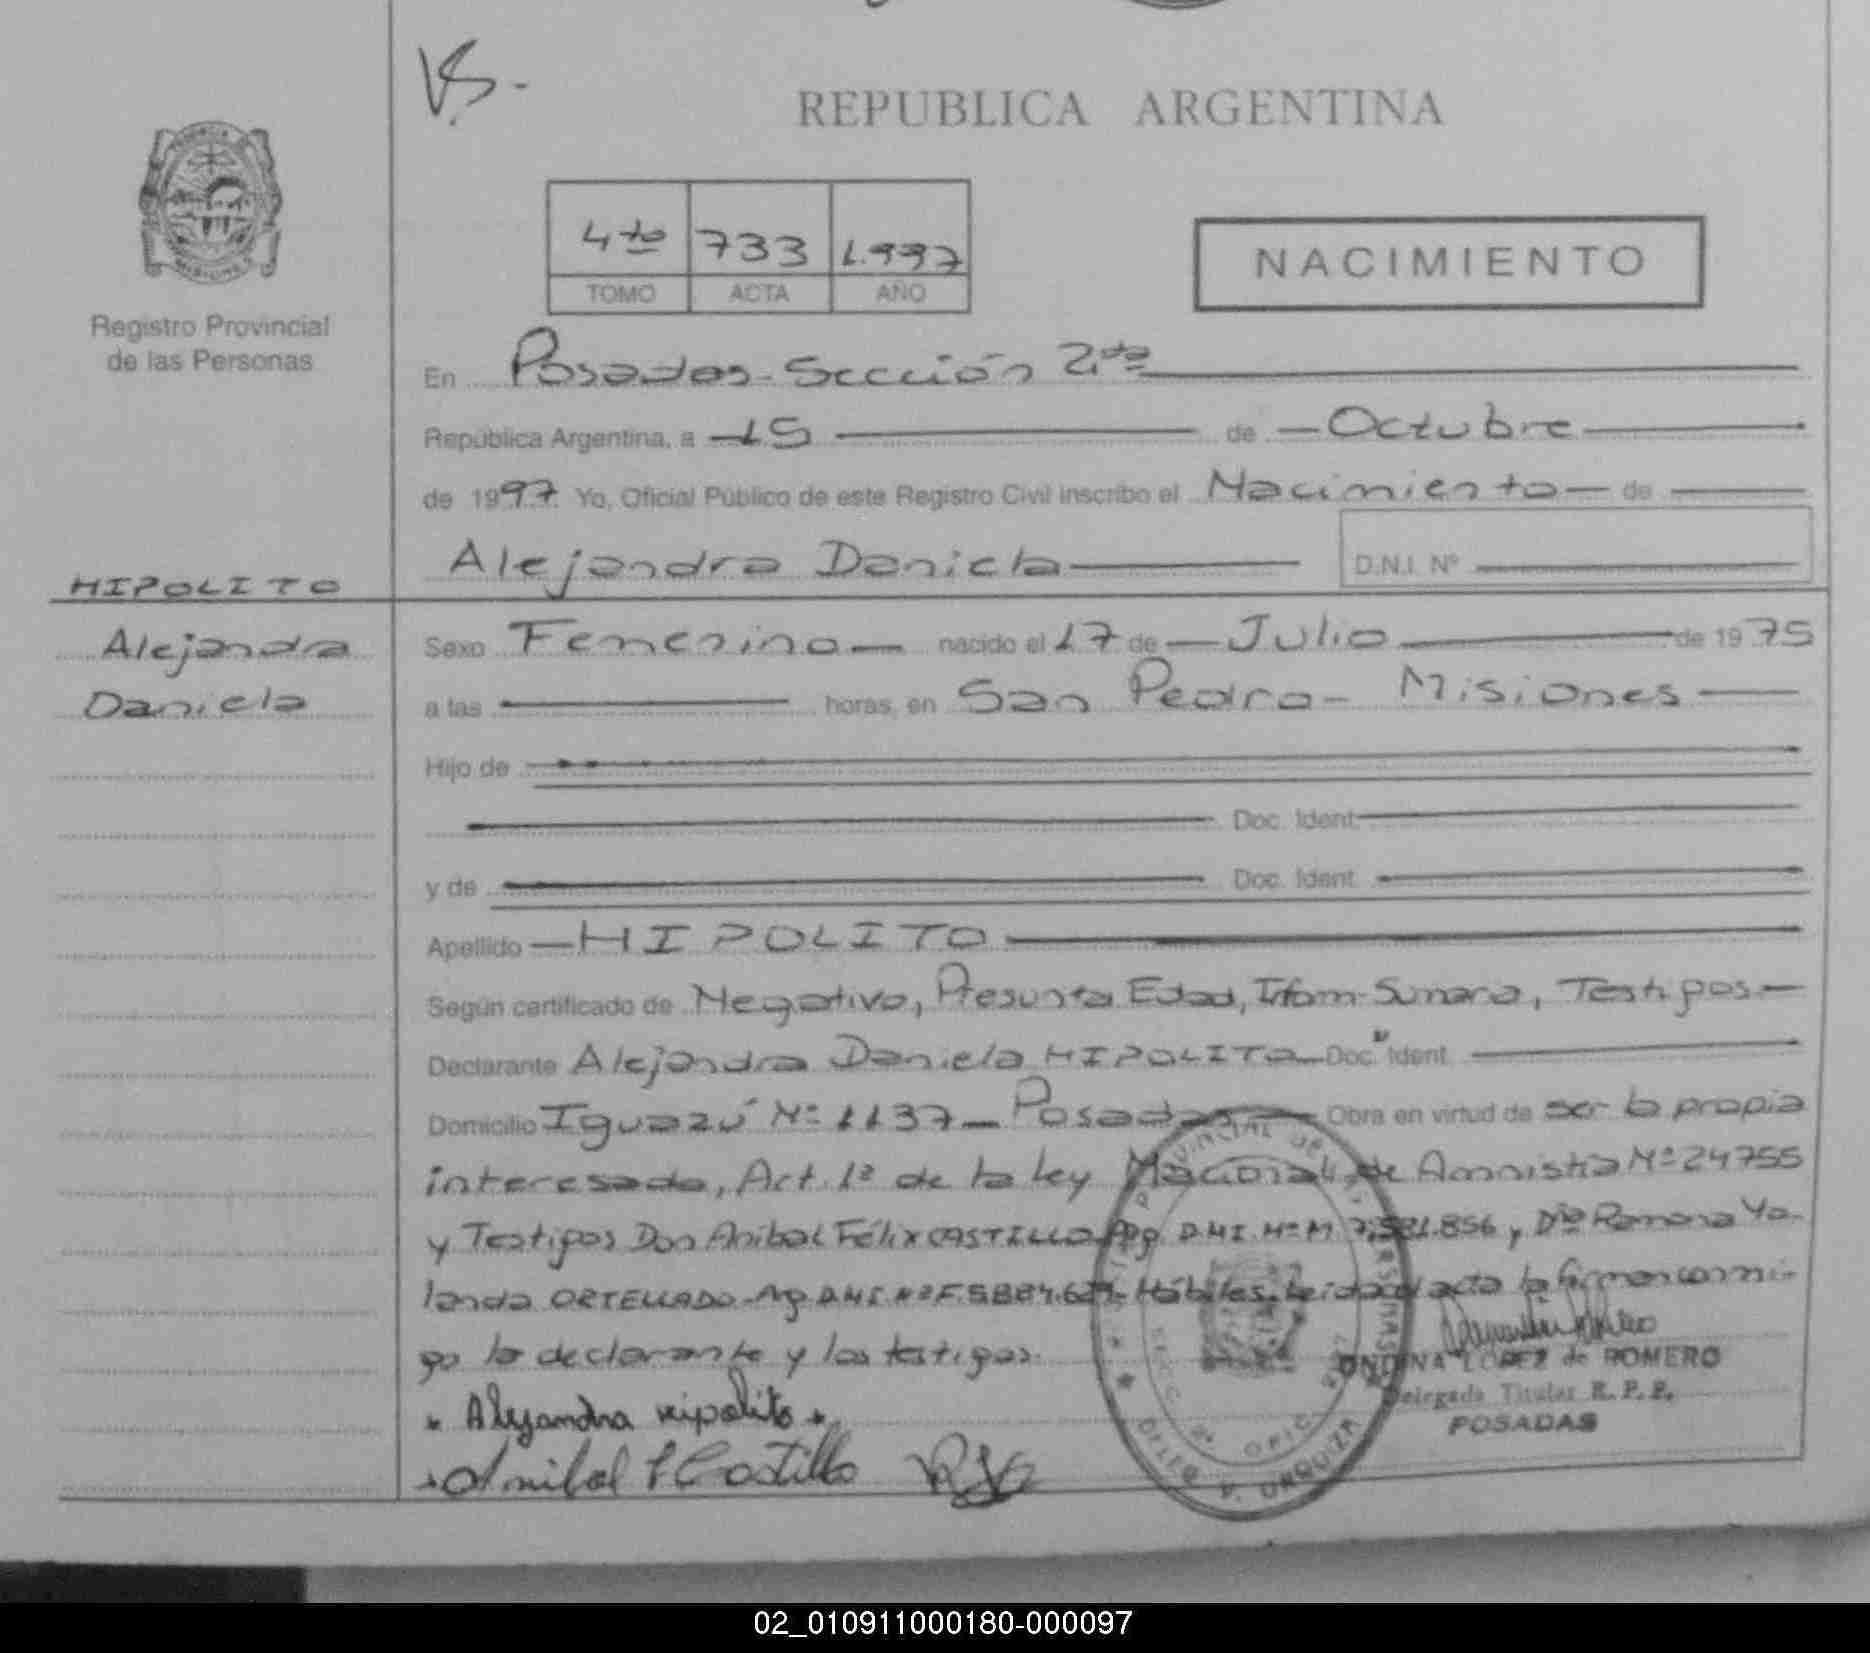 VS.-
REPUBLICA ARGENTINA
4to 733 1.997
TOMO ACTA AÑO
NACIMIENTO
Registro Provincial
de las Personas
En Posadas-Sección 2da
República Argentina, a 15 de Octubre
de 1997. Yo, Oficial Público de este Registro Civil inscribo el Nacimiento de
Alejandra Daniela D.N.I. Nº
HIPOLITO
Alejandra
Daniela
Sexo Femenino nacido el 17 de Julio de 1975
a las horas, en San Pedro- Misiones
Hijo de
Doc. Ident.
y de Doc. Ident.
Apellido HIPOLITO
Según certificado de Negativo, Presunta Edad, Inform-Sumaria, Testigos
Declarante Alejandra Daniela HIPOLITO Doc. Ident.
Domicilio Iguazú Nº 1137 Posadas Obra en virtud de ser la propia
interesada, Art. 1º de la Ley Nacional de Amnistía Nº 24755
y Testigos Don Anibal Félix CASTILLO Arg. D.N.I. Nº M. 7.581.856 y Dña Ramona Yo-
landa ORTELLADO-Arg D.N.I. Nº F. Hábiles. Leida el acta la firman conmi-
go la declarante y los testigos.
Alejandra Hipolito
Anibal F Castillo
ONDINA LOPEZ de ROMERO
Delegada Titular R. P. P.
POSADAS
02_010911000180-000097